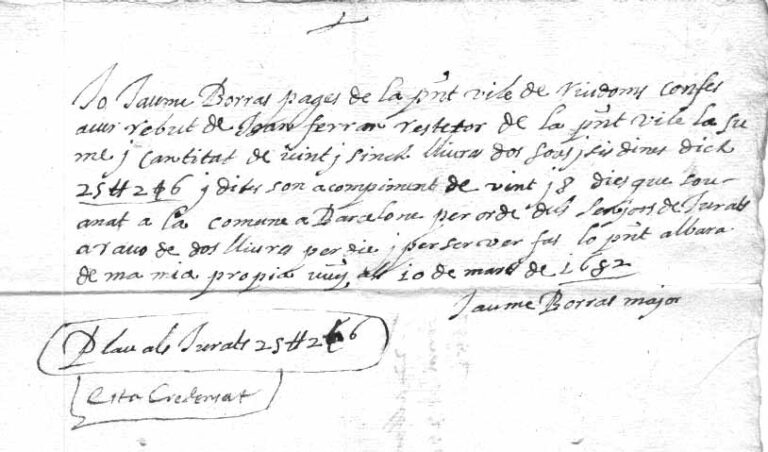 Jo Jaume Borras pages de la pnt vila de Riudoms confes
aver rebut de Joan ferran restetor de la pnt vila la su
me y cantitat de vint y sinch lliures dos sous y sis dines dich
25 ll 2 s 6 y dites son a compliment de vint y 8 dies que so
anat a la comune a Barcelone per orde dels senjors de Jurats
a rao de dos lliures per die y per ser ver fas lo pnt albara
de ma mia propia vuy als 10 de mars de 1682
Jaume Borras major
P lau als Jurats 25 ll 2 s 6
esta Credensat